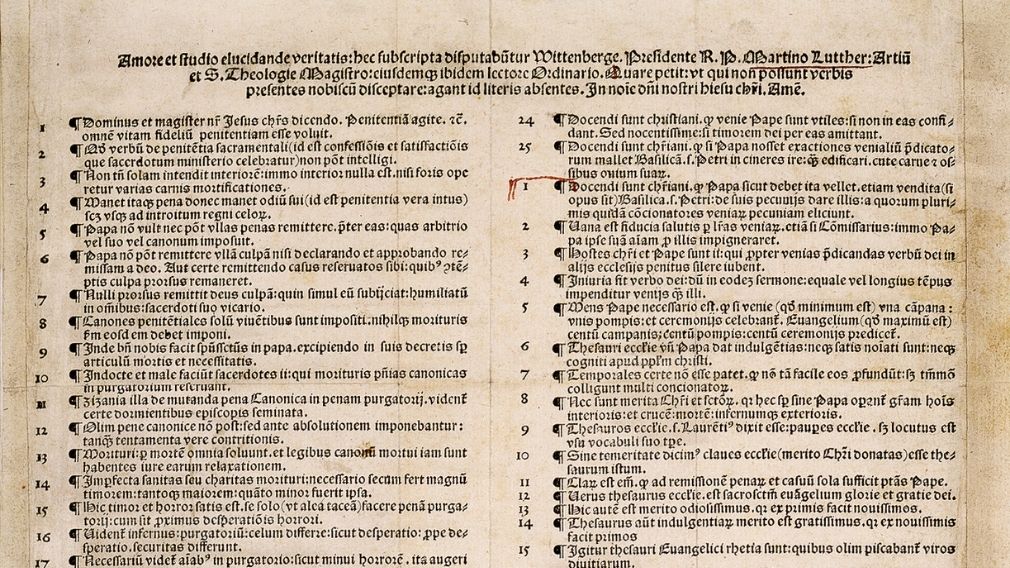 Amore et studio elucidande veritatis: hec subscripta disputabūtur Wittenberge. Presidente R. P. Martino Lutther: Artiū
et S. Theologie Magistro: eiusdemqꝫ ibidem lectore Ordinario. Quare petit: vt qui non possunt verbis
presentes nobiscū disceptare: agant id literis absentes. In noīe dn̄i nostri hiesu chr̄i. Amē.
1 ¶ Dominus et magister nr̄ Jesus chr̄s dicendo. Penitentiā agite. ⁊č.
omnē vitam fideliū penitentiam esse voluit.
2 ¶ Qd̓ verbū de penitētia sacramentali (id est confessiōis et satisfactiōis
que sacerdotum ministerio celebratur) non pōt intelligi.
3 ¶ Non tn̄ solam intendit interiorē: immo interior nulla est. nisi foris ope
retur varias carnis mortificationes.
4 ¶ Manet itaqꝫ pena donec manet odiū sui (id est penitentia vera intus)
scꝫ vsqꝫ ad introitum regni celoꝝ.
5 ¶ Papa nō vult nec pōt vllas penas remittere. p̄ter eas: quas arbitrio
vel suo vel canonum imposuit.
6 ¶ Papa nō pōt remittere vllā culpā nisi declarando et approbando re-
missam a deo. Aut certe remittendo casus reseruatos sibi: quibꝰ ꝯtē-
ptis culpa prorsus remaneret.
7 ¶ Nulli prorsus remittit deus culpā: quin simul eū subijciat: humiliatū
in om̄ibus: sacerdoti suo vicario.
8 ¶ Canones penitētiales solū viuētibus sunt impositi. nihilqꝫ morituris
ꝑm eosd em debet imponi.
9 ¶ Inde bn̄ nobis facit spūssctūs in papa. excipiendo in suis decretis sp̄
articulū mortis et necessitatis.
10 ¶ Indocte et male faciūt sacerdotes ii: qui morituris pn̄ias canonicas
in purgatorium reseruant.
11 ¶ Zizania illa de mutanda pena Canonica in penam purgatorij. videnť
certe dormientibus episcopis seminata.
12 ¶ Olim pene canonice nō post: sed ante absolutionem imponebantur:
tanqꝫ tentamenta vere contritionis.
13 ¶ Morituri: ꝑ mortē omnia soluunt. et legibus canonū mortui iam sunt
habentes iure earum relaxationem.
14 ¶ Imperfecta sanitas seu charitas morituri: necessario secum fert magnū
timorem: tantoqꝫ maiorem: quāto minor fuerit ipsa.
15 ¶ Hic timor et horror satis est. se solo (vt alea taceā) facere penā purga-
torij: cum sit ꝓximus desperatiōis horrori.
16 ¶ Vident̓ infernus: purgatoriū: celum differre: sicut desperatio: ꝓpe de-
speratio. securitas differunt.
17 ¶ Necessariū videt̓ aīabꝰ in purgatorio: sicut minui horrorē. ita augeri
24 ¶ Docendi sunt christiani. ꝙ venie Pape sunt vtiles: si non in eas confi-
dant. Sed nocentissime: si timorem dei per eas amittant.
25 ¶ Docendi sunt chr̄iani. ꝙ si Papa nosset exactiones venialiū p̄dicato-
rum mallet Basilicā. s. Petri in cineres ire: qꝫ edificari. cute carne ⁊ os-
sibus ouium suaꝝ.
1 ¶ Docendi sunt chr̄iani. ꝙ Papa sicut debet ita vellet. etiam vendita (si
opus sit) Basilica. s. Petri: de suis pecunijs dare illis: a quorum pluri-
mis quosdā cōcionatores veniaꝝ pecuniam eliciunt.
2 ¶ Vana est fiducia salutis ꝑ lr̄as veniaꝝ. etiā si Cōmissarius: immo Pa-
pa ipse suā aīam ꝓ illis impigneraret.
3 ¶ Hostes chr̄i et Pape sunt ii: qui ꝓpter venias p̄dicandas verbū dei in
alijs ecclesijs penitus silere iubent.
4 ¶ Iniuria fit verbo dei: dū in eodeꝫ sermone: equale vel longius tēpus
impenditur venijs qꝫ illi.
5 ¶ Mens Pape necessario est. ꝙ si venie (qd̓ minimum est) vna cāpana:
vnis pompis: et ceremonijs celebranť. Euangelium (qd̓ maximū est)
centū campanis: centū pompis: centū ceremonijs predicet̓.
6 ¶ Thesauri eccl̓ie vn̄ Papa dat indulgētias: necꝫ satis noīati sunt: necꝫ
cogniti apud ppl̓m christi.
7 ¶ Temporales certe nō esse patet. ꝙ nō tā facile eos ꝓfundūt: sꝫ tm̄mō
colligunt multi concionatoꝝ.
8 ¶ Nec sunt merita Chr̄i et sctōꝝ. qꝛ hec sp̄ sine Papa oꝑant̓ gr̄am hoīs
interioris: et crucē: mortē: infernumqꝫ exterioris.
9 ¶ Thesauros eccl̓ie. s. Laurētiꝰ dixit esse: pauꝑes eccl̓ie. sꝫ locutus est
vsu vocabuli suo tꝑe.
10 ¶ Sine temeritate dicimꝰ claues eccl̓ie (merito Chr̄i donatas) esse the-
saurum istum.
11 ¶ Claꝝ est em̄. ꝙ ad remissionē penaꝝ et casuū sola sufficit ptās Pape.
12 ¶ Verus thesaurus eccl̓ie. est sacrosctm̄ euāgelium glorie et gratie dei.
13 ¶ Hic autē est merito odiosissimus. qꝛ ex primis facit nouissimos.
14 ¶ Thesaurus aūt indulgentiaꝝ merito est gratissimus. qꝛ ex nouissimis
facit primos
15 ¶ Igitur thesauri Euangelici rhetia sunt: quibus olim piscabant̓ viros
diuitiarum.